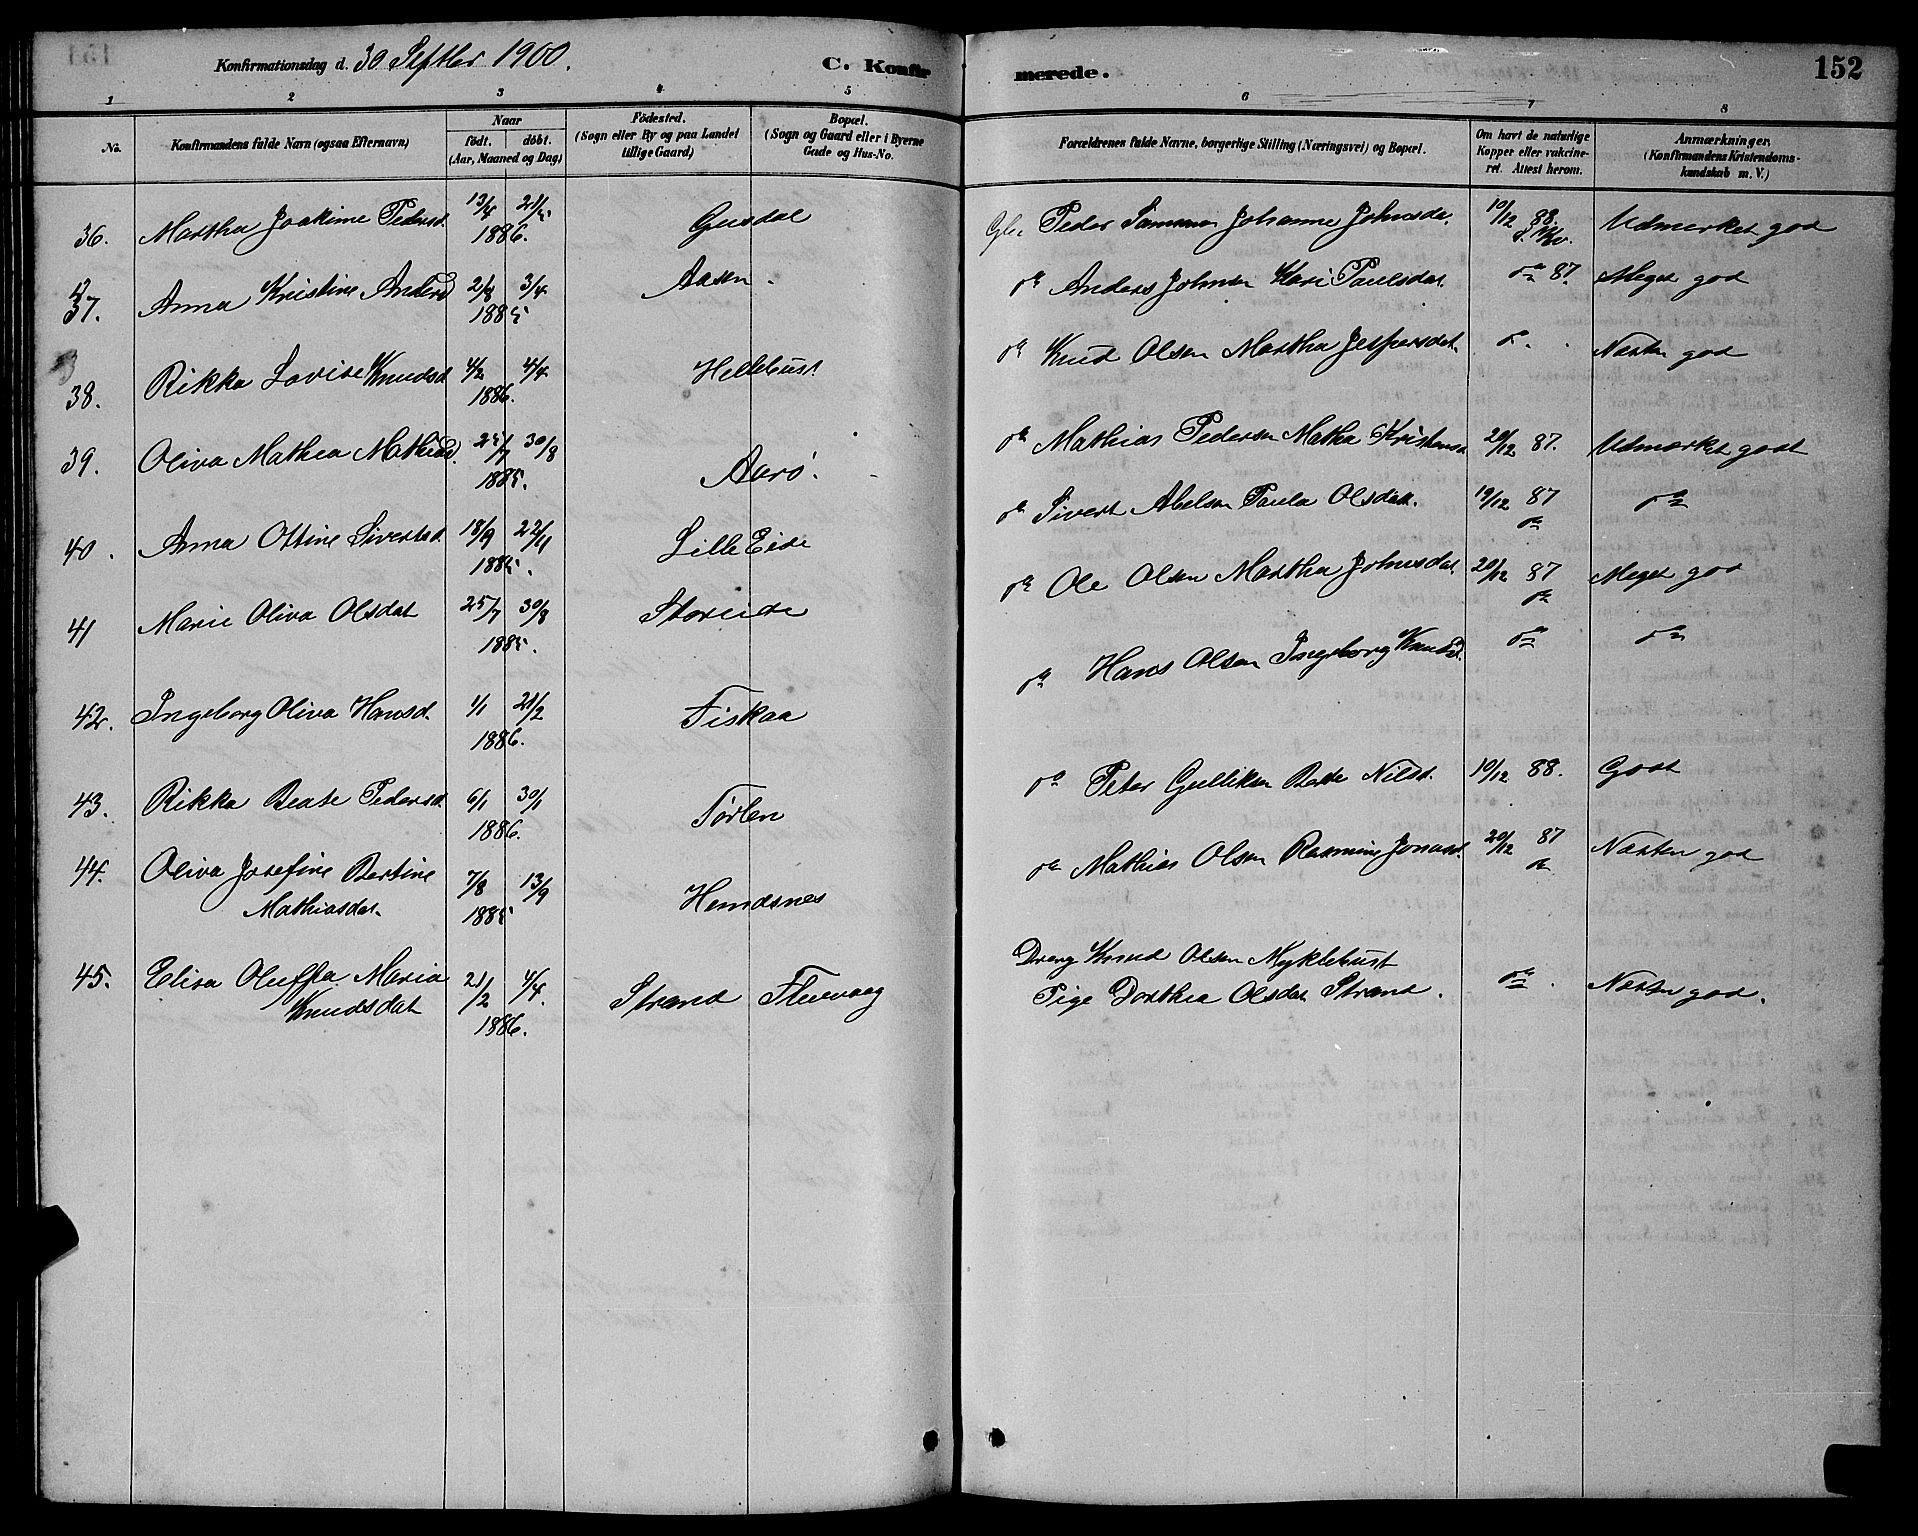 Konfirmationsdag d. 30 Septbr 1900.
C. Konfirmerede.
152
1 2 3 4 5 6 7 8
No.
Konfirmandens fulde Navn (ogsaa Efternavn)
Naar
født. døbt.
(Aar, Maaned og Dag)
Fødested.
(Sogn eller By og paa Landet
tillige Gaard)
Bopæl.
(Sogn og Gaard eller i Byerne
Gade og Hus-No.
Forældrenes fulde Navne, borgerlige Stilling (Næringsvei) og Bopæl.
Om havt de naturlige
Kopper eller vakcine-
ret. Attest herom.
Anmærkninger.
(Konfirmandens Kristendoms-
kundskab m. V.)
36. Martha Joakime Pedersd. 13/4 21/5 1886. Gusdal Gbr Peder Johanne Johnsda. 10/12 88. Udmerket god
37. Anna Kristine Andersd 2/4 3/4 1885 Aasen. do Anders Johnsen Kari Paulsdat. do 87. Meget god
38. Rikka Lovise Knudsd 4/2 4/4 1886. Hellebust do Knud Olsen Martha Jespersdat. do. Næsten god
39. Oliva Mathea Mathiasd. 25/7 30/8 1885. Aarø. do Mathias Pedersen Matha Kristensd 20/12 87. Udmærket godt
40. Anna Ottine Sivertsd. 18/9 22/11 1885. Lille Eide do Sivert Abelsen Paula Olsdat. 19/12 87 do do
41 Marie Oliva Olsdat 25/7 30/8 1885. Storeide do Ole Olsen Martha Johnsdat 20/12 87 do Meget god
42. Ingeborg Oliva Hansd. 1/1 21/2 1886. Fiskaa do Hans Olsen Ingeborg Knudsd. do do
43. Rikka Beate Pedersd. 6/1 30/1 1886. Tørlen do Peter Gulliksen Beate Nilsd. 10/12 88. Godt
44. Oliva Josefine Bertine
Mathiasdat. 7/8 13/9 1885 Hemdsnes do Mathias Olsen Rasmine Jonasd. 20/12 87 do Næsten god
45. Elisa Oluffa Maria
Knudsdat 21/2 4/4. 1886. Strand Fluevaag Dreng Knud Olsen Myklebust
Pige Dorthea Olsdat Strand. do. Næsten god.